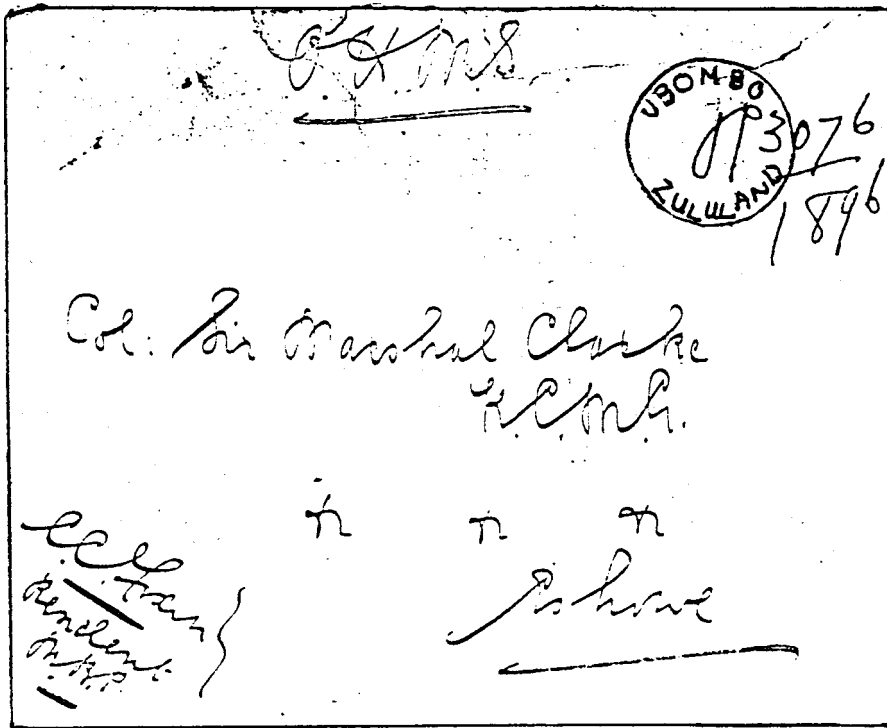 O.H.M.S
UBOMBO
ZULULAND
3076
1896
Col: Sir Marshal Clarke
K.C.M.G.
Eshowe
Resident